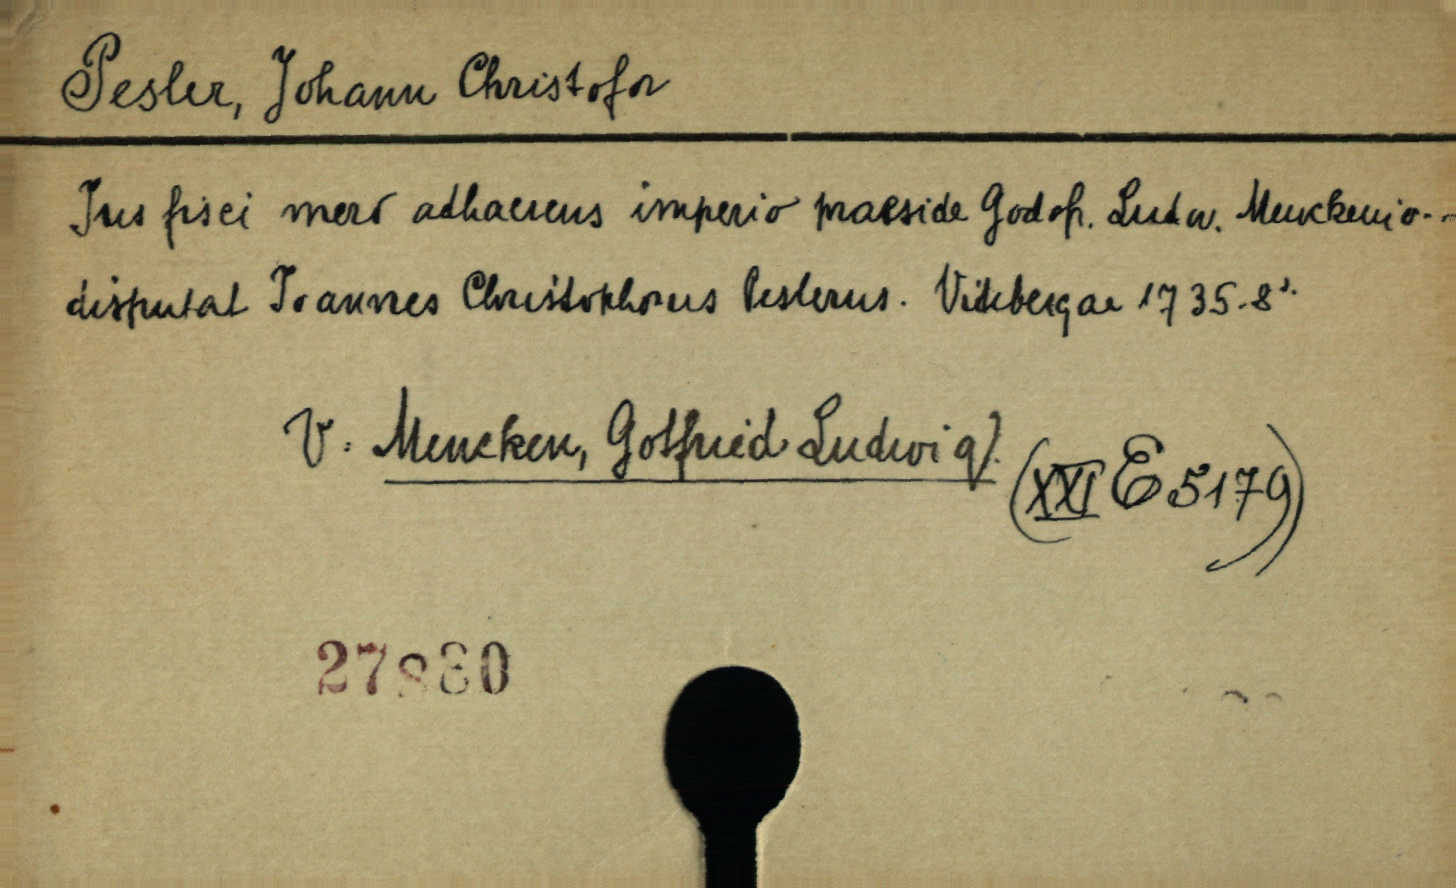 Pesler, Johann Christofor
Jus fisci mero adhaerens imperio praeside Godofr. Ludov. Menckenio--
disputat Ioannes Christophorus Peslerus. Vitebergae 1735. 8°.
V. Mencken, Gotfried Ludwig).
(XXI E 5179)
27880